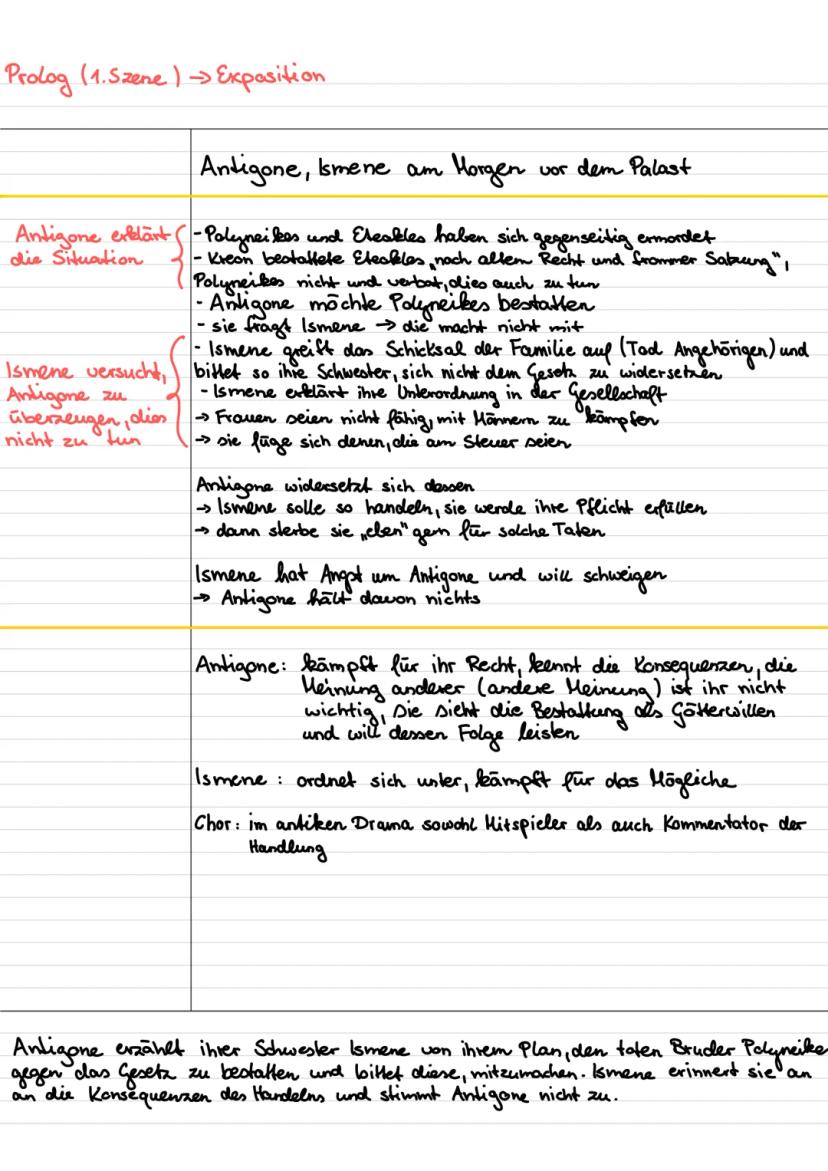 Prolog (1. Szene) → Exposition
Antigone, Ismene am Morgen vor dem Palast
Antigone erklärt
die Situation
- Polyneikes und Eteokles haben sich gegenseitig ermordet
- Kreon bestattete Eteokles „nach altem Recht und frommer Satzung",
Polyneikes nicht und verbat, dies auch zu tun
- Antigone möchte Polyneikes bestatten
- sie fragt Ismene → die macht nicht mit
Ismene versucht,
Antigone zu
überzeugen, dies
nicht zu tun
- Ismene greift das Schicksal der Familie auf (Tod Angehörigen) und
bittet so ihre Schwester, sich nicht dem Gesetz zu widersetzen
- Ismene erklärt ihre Unterordnung in der Gesellschaft
→ Frauen seien nicht fähig, mit Männern zu kämpfen
→ sie füge sich denen, die am Steuer seien
Antigone widersetzt sich dessen
→ Ismene solle so handeln, sie werde ihre Pflicht erfüllen
→ dann sterbe sie „eben" gern für solche Taten
Ismene hat Angst um Antigone und will schweigen
→ Antigone hält davon nichts
Antigone: kämpft für ihr Recht, kennt die Konsequenzen, die
Meinung anderer (andere Meinung) ist ihr nicht
wichtig, Sie sieht die Bestattung als Götterwillen
und will dessen Folge leisten
Ismene : ordnet sich unter, kämpft für das Mögliche
Chor: im antiken Drama sowohl Mitspieler als auch Kommentator der
Handlung
Antigone erzählt ihrer Schwester Ismene von ihrem Plan, den toten Bruder Polyneike
gegen das Gesetz zu bestatten und bittet diese, mitzumachen. Ismene erinnert sie an
an die Konsequenzen des Handelns und stimmt Antigone nicht zu.